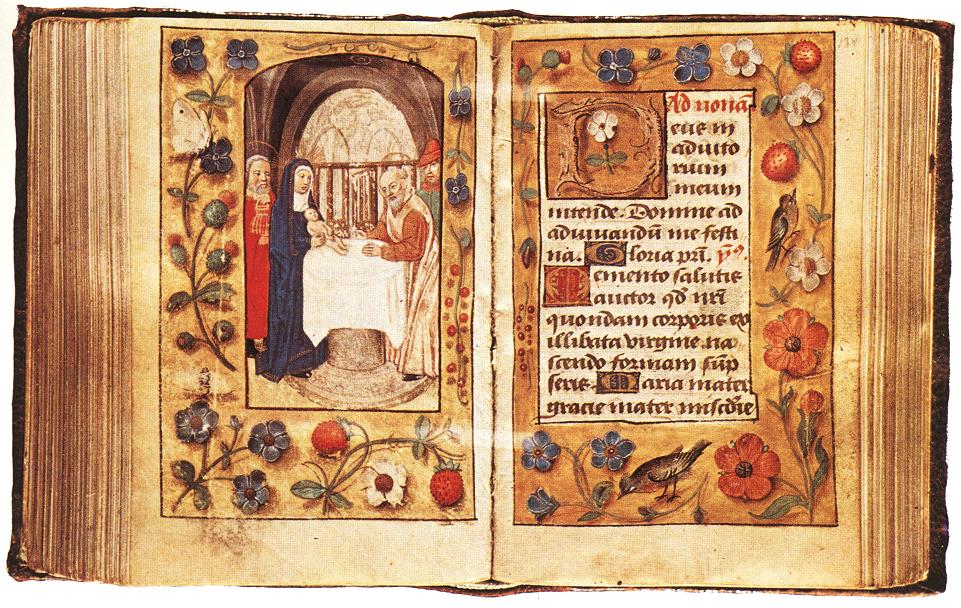 Ad nonā
eus in
adiuto
rium
meum
intende. Domine ad
adiuuandū me festi
na. Gloria pri. ps.
emento salutis
auctor qd nri
quondam corporis ex
illibata virgine na
scendo formam sūp
seris. Maria mater
gracie mater miscdie